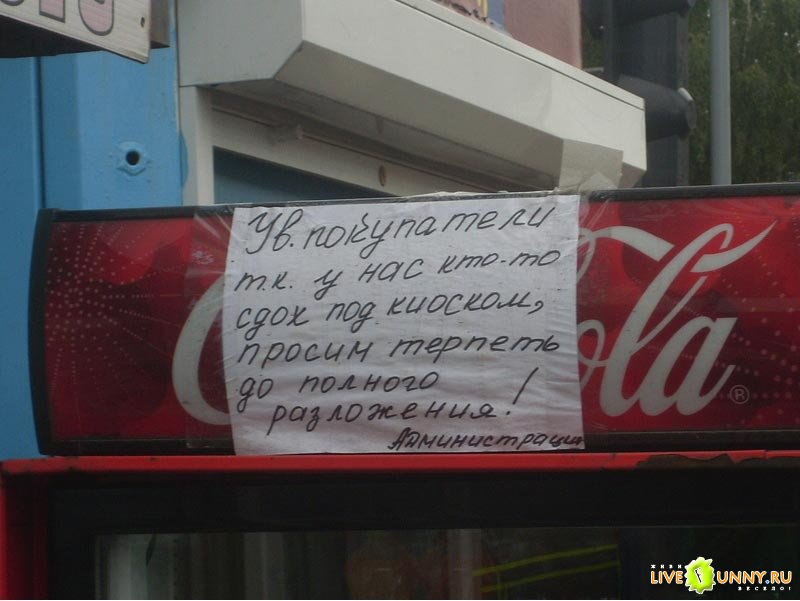 Ув. покупатели
т.к. у нас кто-то
сдох под киоском,
просим терпеть
до полного
разложения!
Администрация
Cola
®
живи
LIVE UNNY.RU
весело!